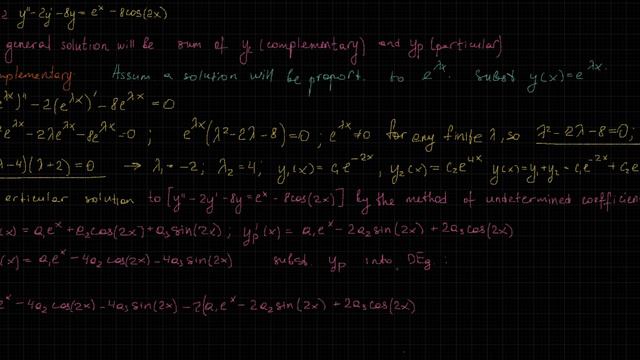 2 y'' - 2y' - 8y = e^x - 8cos(2x)
general solution will be sum of y_c (complementary) and y_p (particular)
mplementary: Assume a solution will be proport. to e^{λx}. Subst y(x) = e^{λx}.
e^{λx})'' - 2(e^{λx})' - 8e^{λx} = 0
²e^{λx} - 2λe^{λx} - 8e^{λx} = 0 ; e^{λx}(λ² - 2λ - 8) = 0 ; e^{λx} ≠ 0 for any finite λ, so λ² - 2λ - 8 = 0;
λ - 4)(λ + 2) = 0 → λ₁ = -2; λ₂ = 4; y₁(x) = c₁e^{-2x}, y₂(x) = c₂e^{4x} y(x) = y₁ + y₂ = c₁e^{-2x} + c₂e
articular solution to [y'' - 2y' - 8y = e^x - 8cos(2x)] by the method of undetermined coefficien
(x) = a₁e^x + a₂cos(2x) + a₃sin(2x) ; y_p'(x) = a₁e^x - 2a₂sin(2x) + 2a₃cos(2x)
(x) = a₁e^x - 4a₂cos(2x) - 4a₃sin(2x) subst. y_p into DEq. :
e^x - 4a₂cos(2x) - 4a₃sin(2x) - 2(a₁e^x - 2a₂sin(2x) + 2a₃cos(2x)